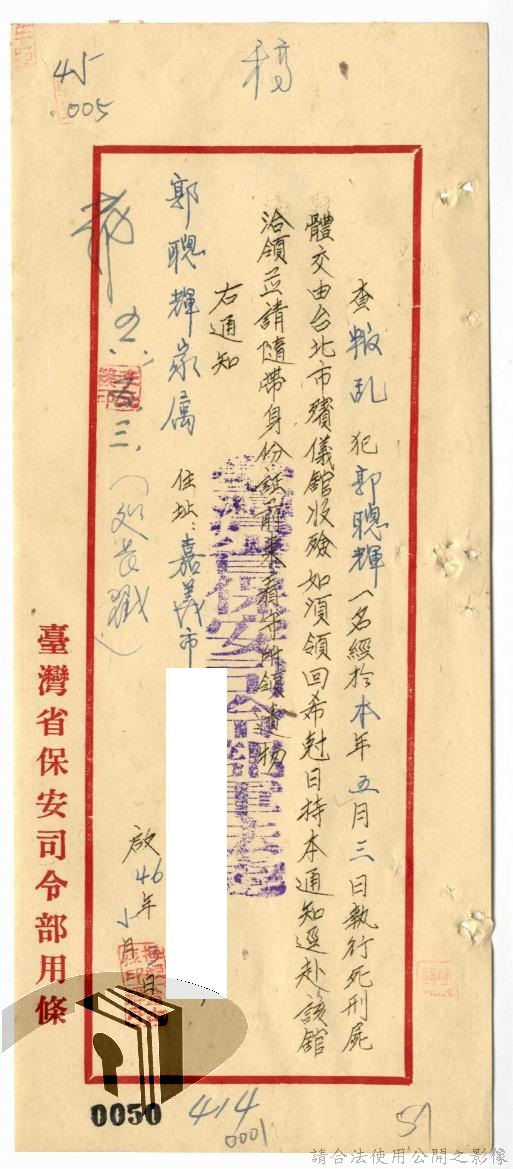 稿
45
005
查叛乱犯郭聰輝一名經於本年五月三日執行死刑屍
體交由台北市殯儀館收殮如須領回希尅日持本通知逕赴該館
洽領並請隨帶身份証前來看守所領遺物
右通知
郭聰輝家属 住址：嘉義市
啟
46年
月 日
五.三.
臺灣省保安司令部用條
0050
414
0001
51
請合法使用公開之影像